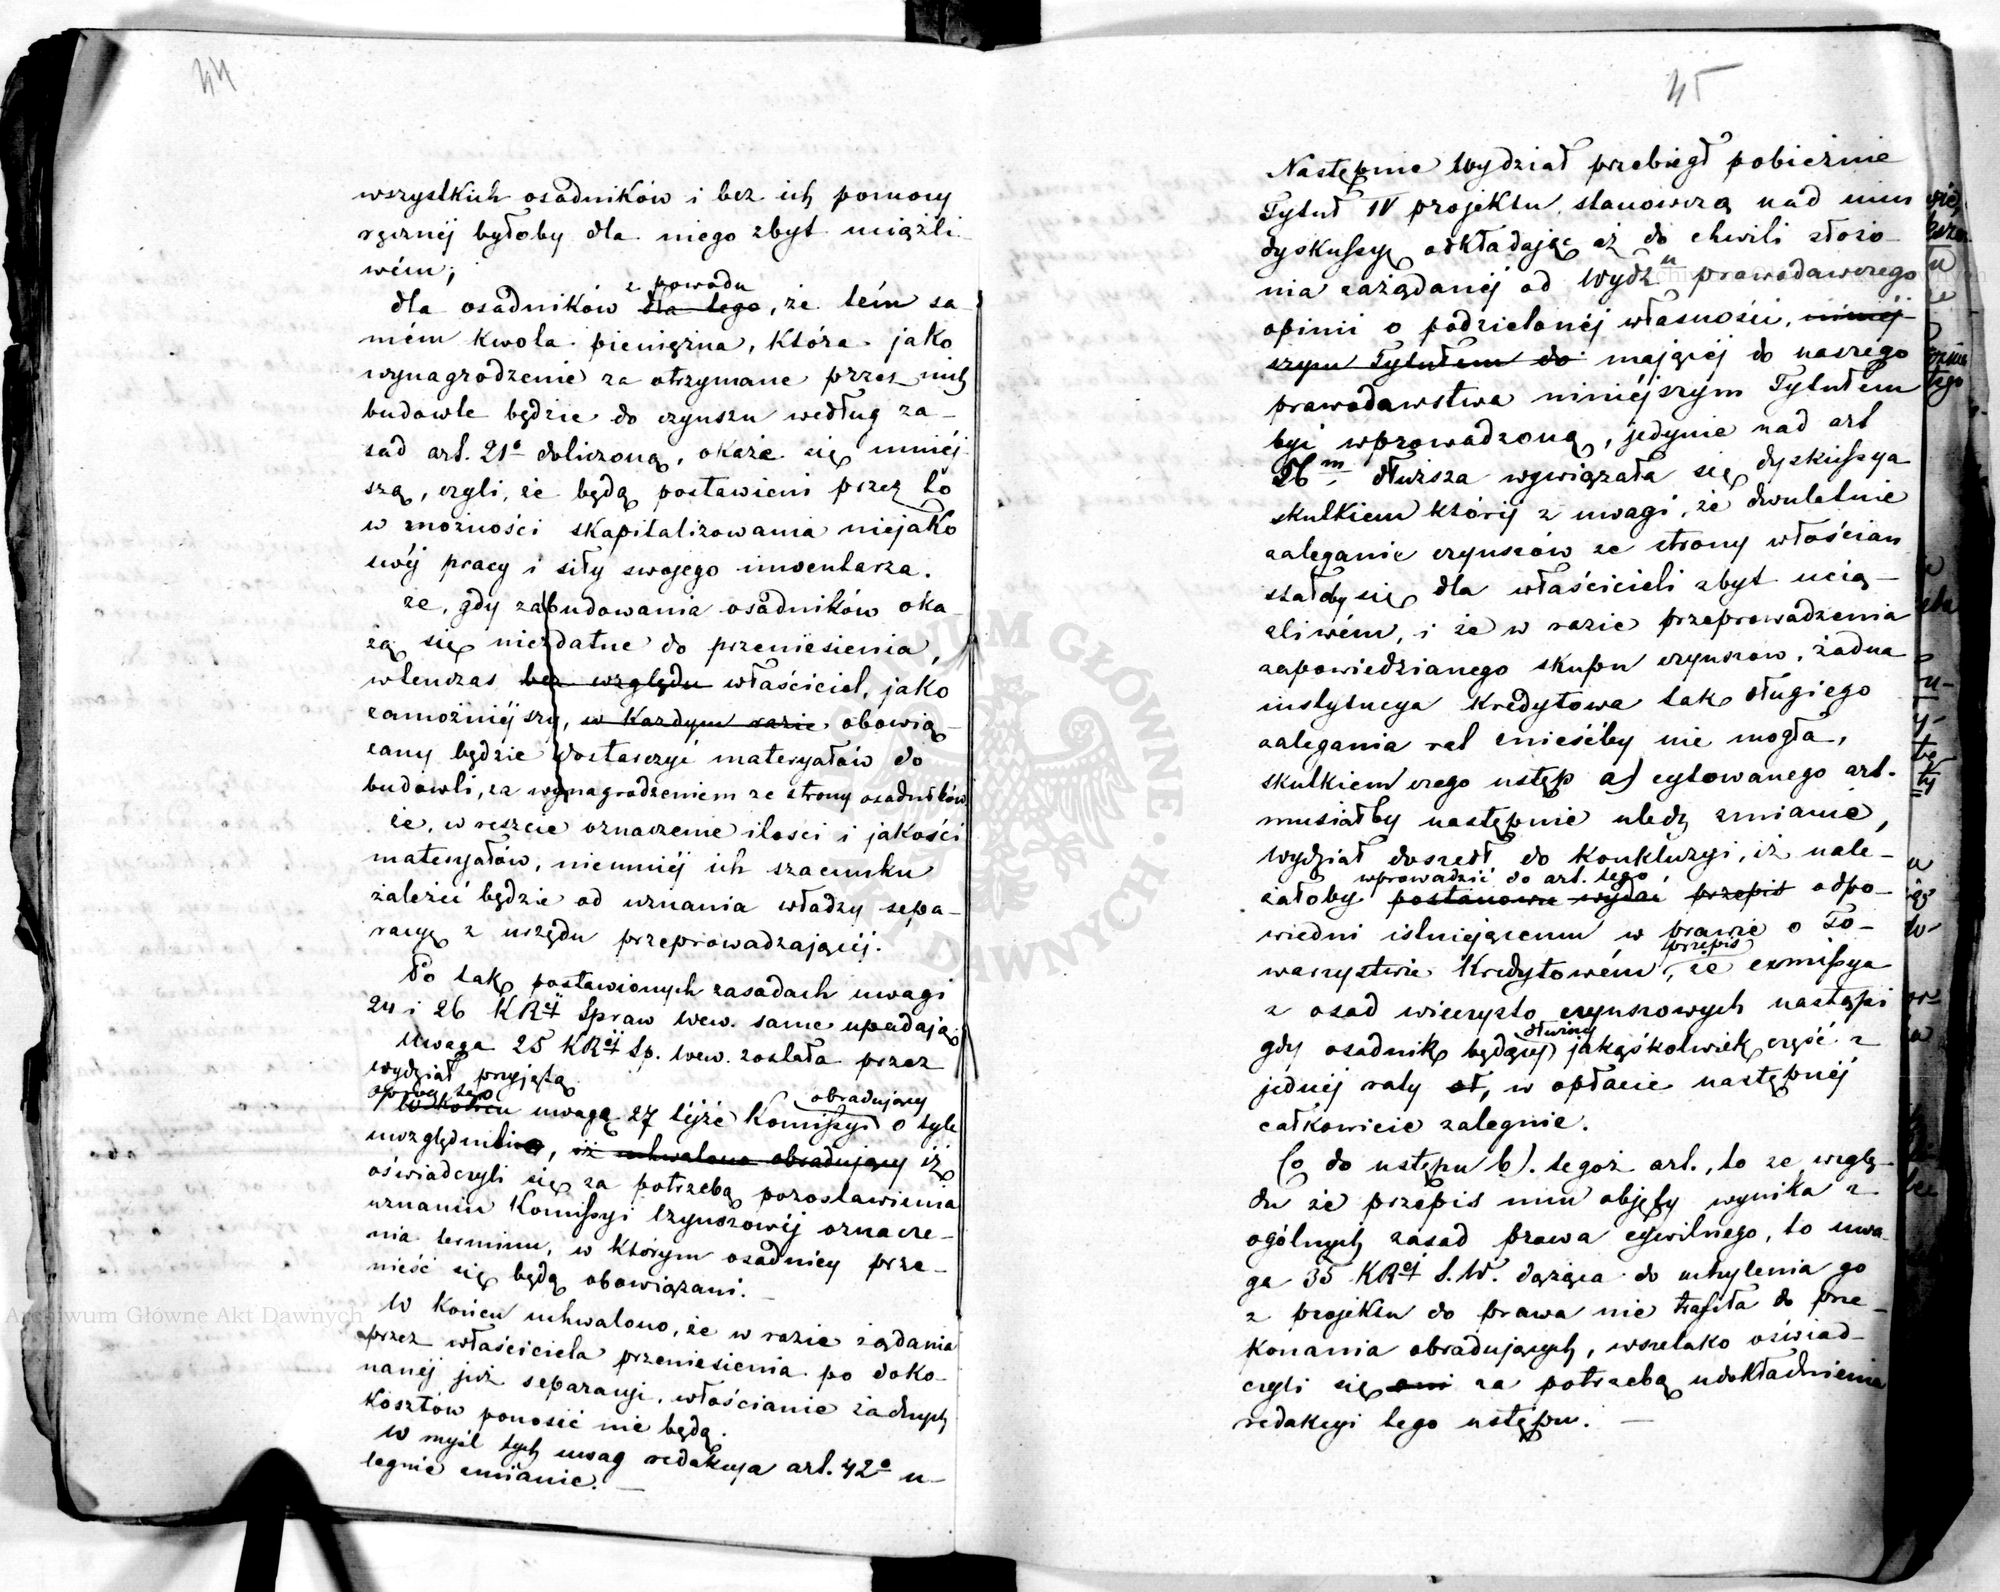 44
wszystkich osadników i bez ich pomocy
ręcznéj byłoby dla niego zbyt uciążli-
wém;
z powodu
dla osadników dla tego, że tém sa-
mém kwota pieniężna, która jako
wynagrodzenie za otrzymane przez nich
budowle będzie do czynszu według za-
sad art. 21º doliczoną, okaże się mniéj
szą, czyli, że będą postawieni przez to
w możności skapitalizowania niejako
swéj pracy i siły swojego inwentarza.
że, gdy zabudowania osadników oka-
żą się niezdatne do przeniesienia,
wtenczas bez względu właściciel, jako
zamożniéjszy, w każdym razie obowią-
zany będzie dostarczyć materyałów do
budowli, za wynagrodzeniem ze strony osadników
że, wreszcie oznaczenie ilości i jakości
materyałów, niemniéj ich szacunku
zależeć będzie od uznania władzy sepa-
racyę z urzędu przeprowadzającéj.
Po tak postawionych zasadach uwagi
24 i 26 KRéj Spraw Wew. same upadają.
Uwaga 25 KRéj Sp. Wew. została przez
wydział przyjętą.
oprócz tego obradujący
W końcu uwagę 27 téjże Kommissyi o tyle
uwzględnili, iż uchwalono obradujący iż
oświadczyli się za potrzebą pozostawienia
uznaniu Komissyi Czynszowéj oznacze-
nia terminu, w którym osadnicy prze-
nieść się będą obowiązani. —
W końcu uchwalono, że w razie żądania
przez właściciela przeniesienia po doko-
nanéj już separacyi, włościanie żadnych
kosztów ponosić nie będą.
W myśl tych uwag redakcya art. 42º u-
legnie zmianie. —
45
Następnie Wydział przebiegł pobieżnie
Tytuł IV projektu, stanowczą nad nim
dyskussyę odkładając aż do chwili złoże-
nia zażądanéj od Wydzu prawodawczego
opinii o podzielonéj własności, niniéj-
szym Tytułem do mającéj do naszego
prawodawstwa niniéjszym Tytułem
być wprowadzoną, jedynie nad art
56m dłuższa wywiązała się dyskussya
skutkiem któréj z uwagi, że dwuletnie
zaleganie czynszów ze strony włościan
stałoby się dla właścicieli zbyt ucią-
żliwém, i że w razie przeprowadzenia
zapowiedzianego skupu czynszów, żadna
instytucya kredytowa tak długiego
zalegania rat znieśćby nie mogła,
skutkiem czego ustęp a) cytowanego art.
musiałby następnie uledz zmianie,
wydział doszedł do konkluzyi, iż nale-
wprowadzić do art. tego
żałoby postanowić wydać przepis odpo-
wiedni istniejącemu w prawie o To-
przepis
warzystwie Kredytowém, że exmissya
z osad wieczysto czynszowych nastąpi
dłużny
gdy osadnik będący jakąśkolwiek część z
jednéj raty st, w opłacie następnéj
całkowicie zalegnie.
Co do ustępu b). tegoż art., to ze wzglę-
du że przepis nim objęty wynika z
ogólnych zasad prawa cywilnego, to uwa-
ga 35 KRéj S.W. dążąca do uchylenia go
z projektu do prawa nie trafiła do prze-
konania obradujących, wszelako oświad-
czyli się oni za potrzebą udokładnienia
redakcyi tego ustępu. —
Archiwum Główne Akt Dawnych
ARCHIWUM GŁÓWNE AKT DAWNYCH